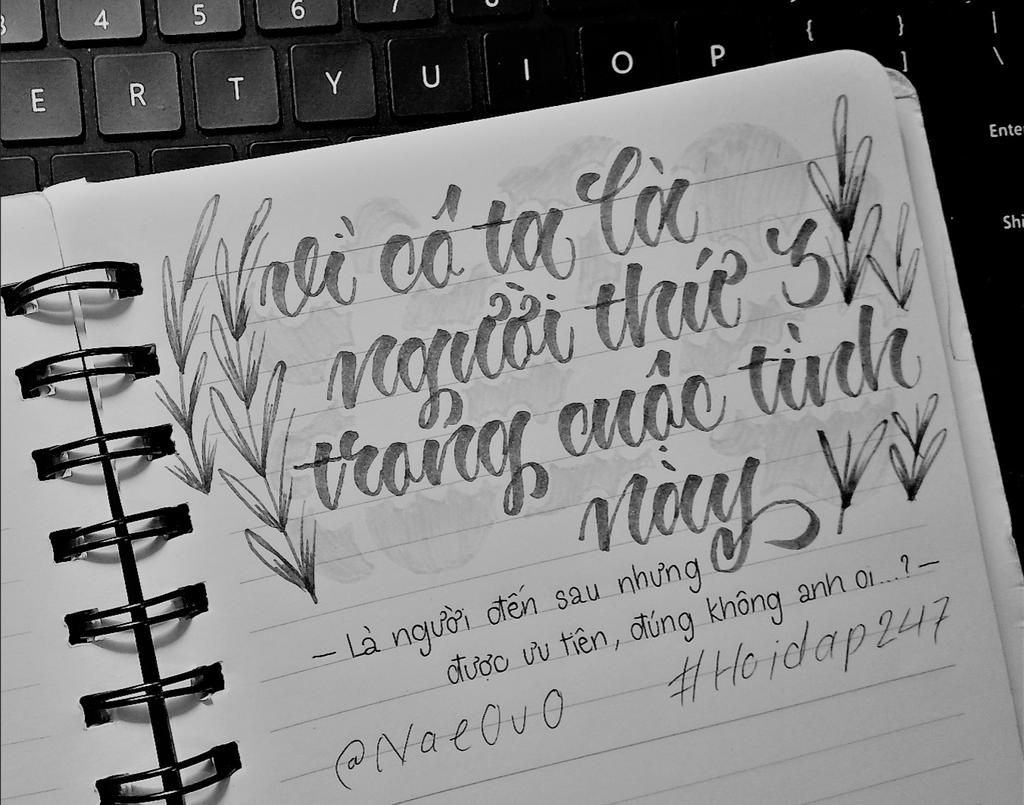 3 4 5 6 7 8
E R T Y U I O P { [ } ] | \
Enter
Shi
vì cô ta là
người thứ 3
trong cuộc tình
này
- Là người đến sau nhưng
được ưu tiên, đúng không anh oi...? -
#Hoidap247
@NaeOvO